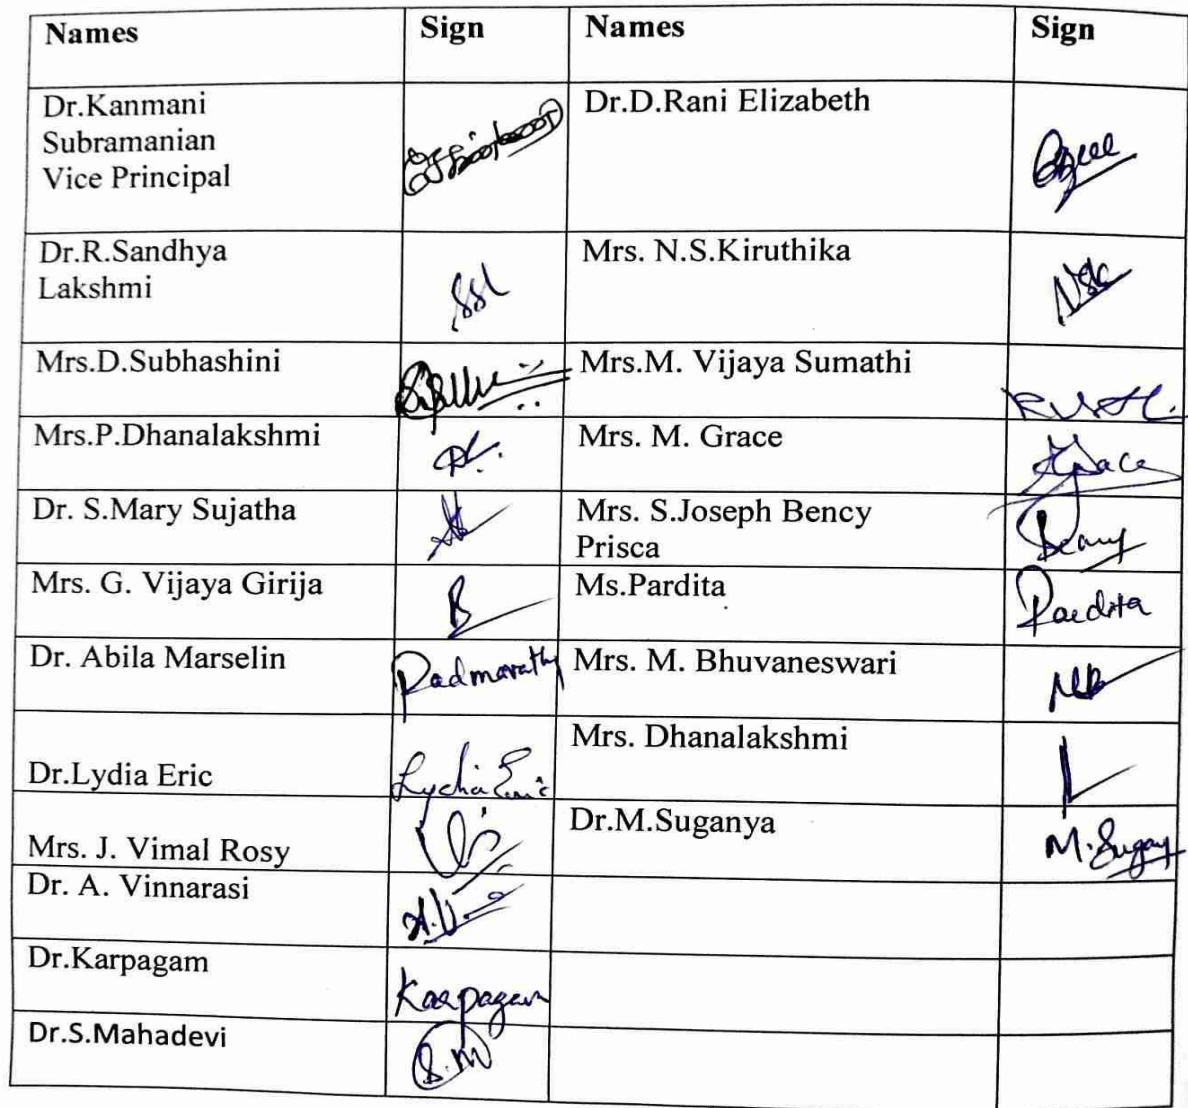 Names Sign Names Sign
Dr.Kanmani
Subramanian
Vice Principal
Dr.D.Rani Elizabeth
Dr.R.Sandhya
Lakshmi
SSL
Mrs. N.S.Kiruthika
NSK
Mrs.D.Subhashini
Mrs.M. Vijaya Sumathi
Mrs.P.Dhanalakshmi
Mrs. M. Grace
Grace
Dr. S.Mary Sujatha
Mrs. S.Joseph Bency
Prisca
Bency
Mrs. G. Vijaya Girija
Ms.Pardita
Pardita
Dr. Abila Marselin
Padmavathy
Mrs. M. Bhuvaneswari
MB
Dr.Lydia Eric
Lydia Eric
Mrs. Dhanalakshmi
Mrs. J. Vimal Rosy
Dr.M.Suganya
M.Sugany
Dr. A. Vinnarasi
A.V
Dr.Karpagam
Karpagam
Dr.S.Mahadevi
S.M